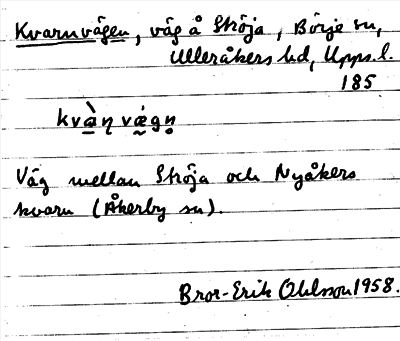 Kvarnvägen, väg å Ströja, Börje sn,
Ulleråkers hd, Upps. l.
185
kvàɳ vǽgṇ
Väg mellan Ströja och Nyåkers
kvarn (Åkerby sn).
Bror-Erik Ohlsson 1958.